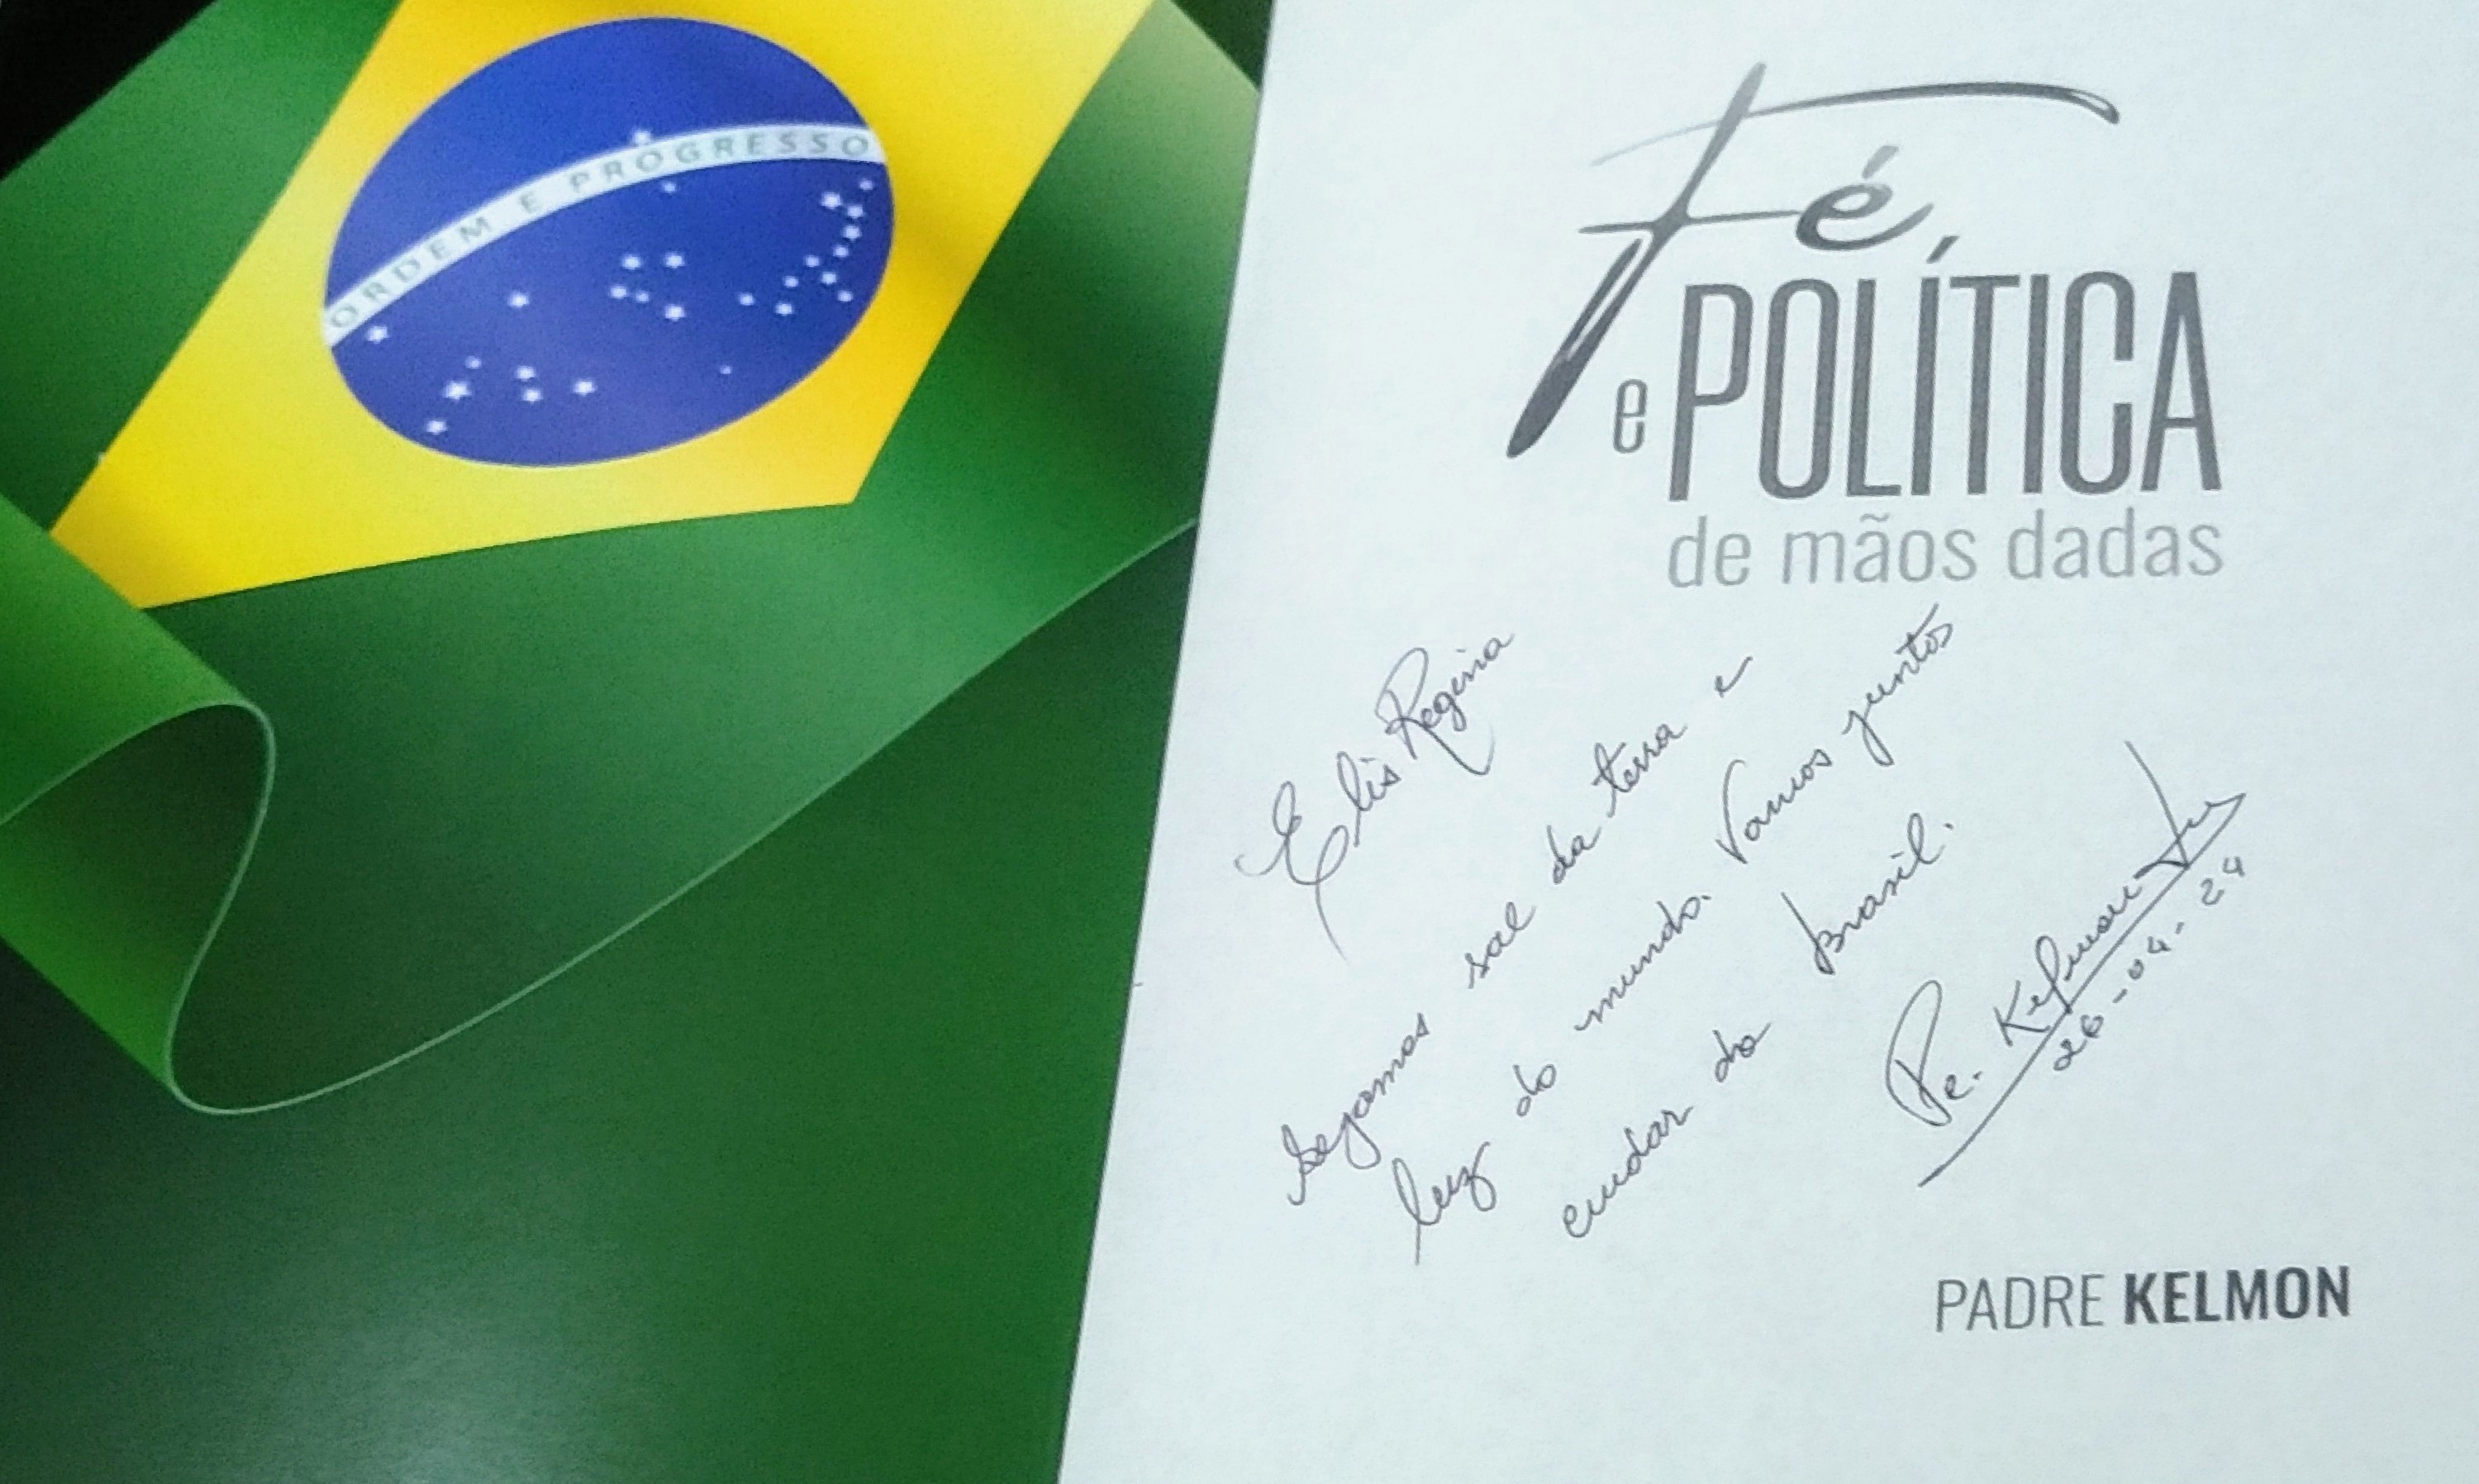 ORDEM E PROGRESSO
Fé
e POLÍTICA
de mãos dadas
Elis Regina
Sejamos sal da terra e
luz do mundo. Vamos juntos
cuidar do Brasil.
Pe. Kelmon
26-04-24
PADRE KELMON